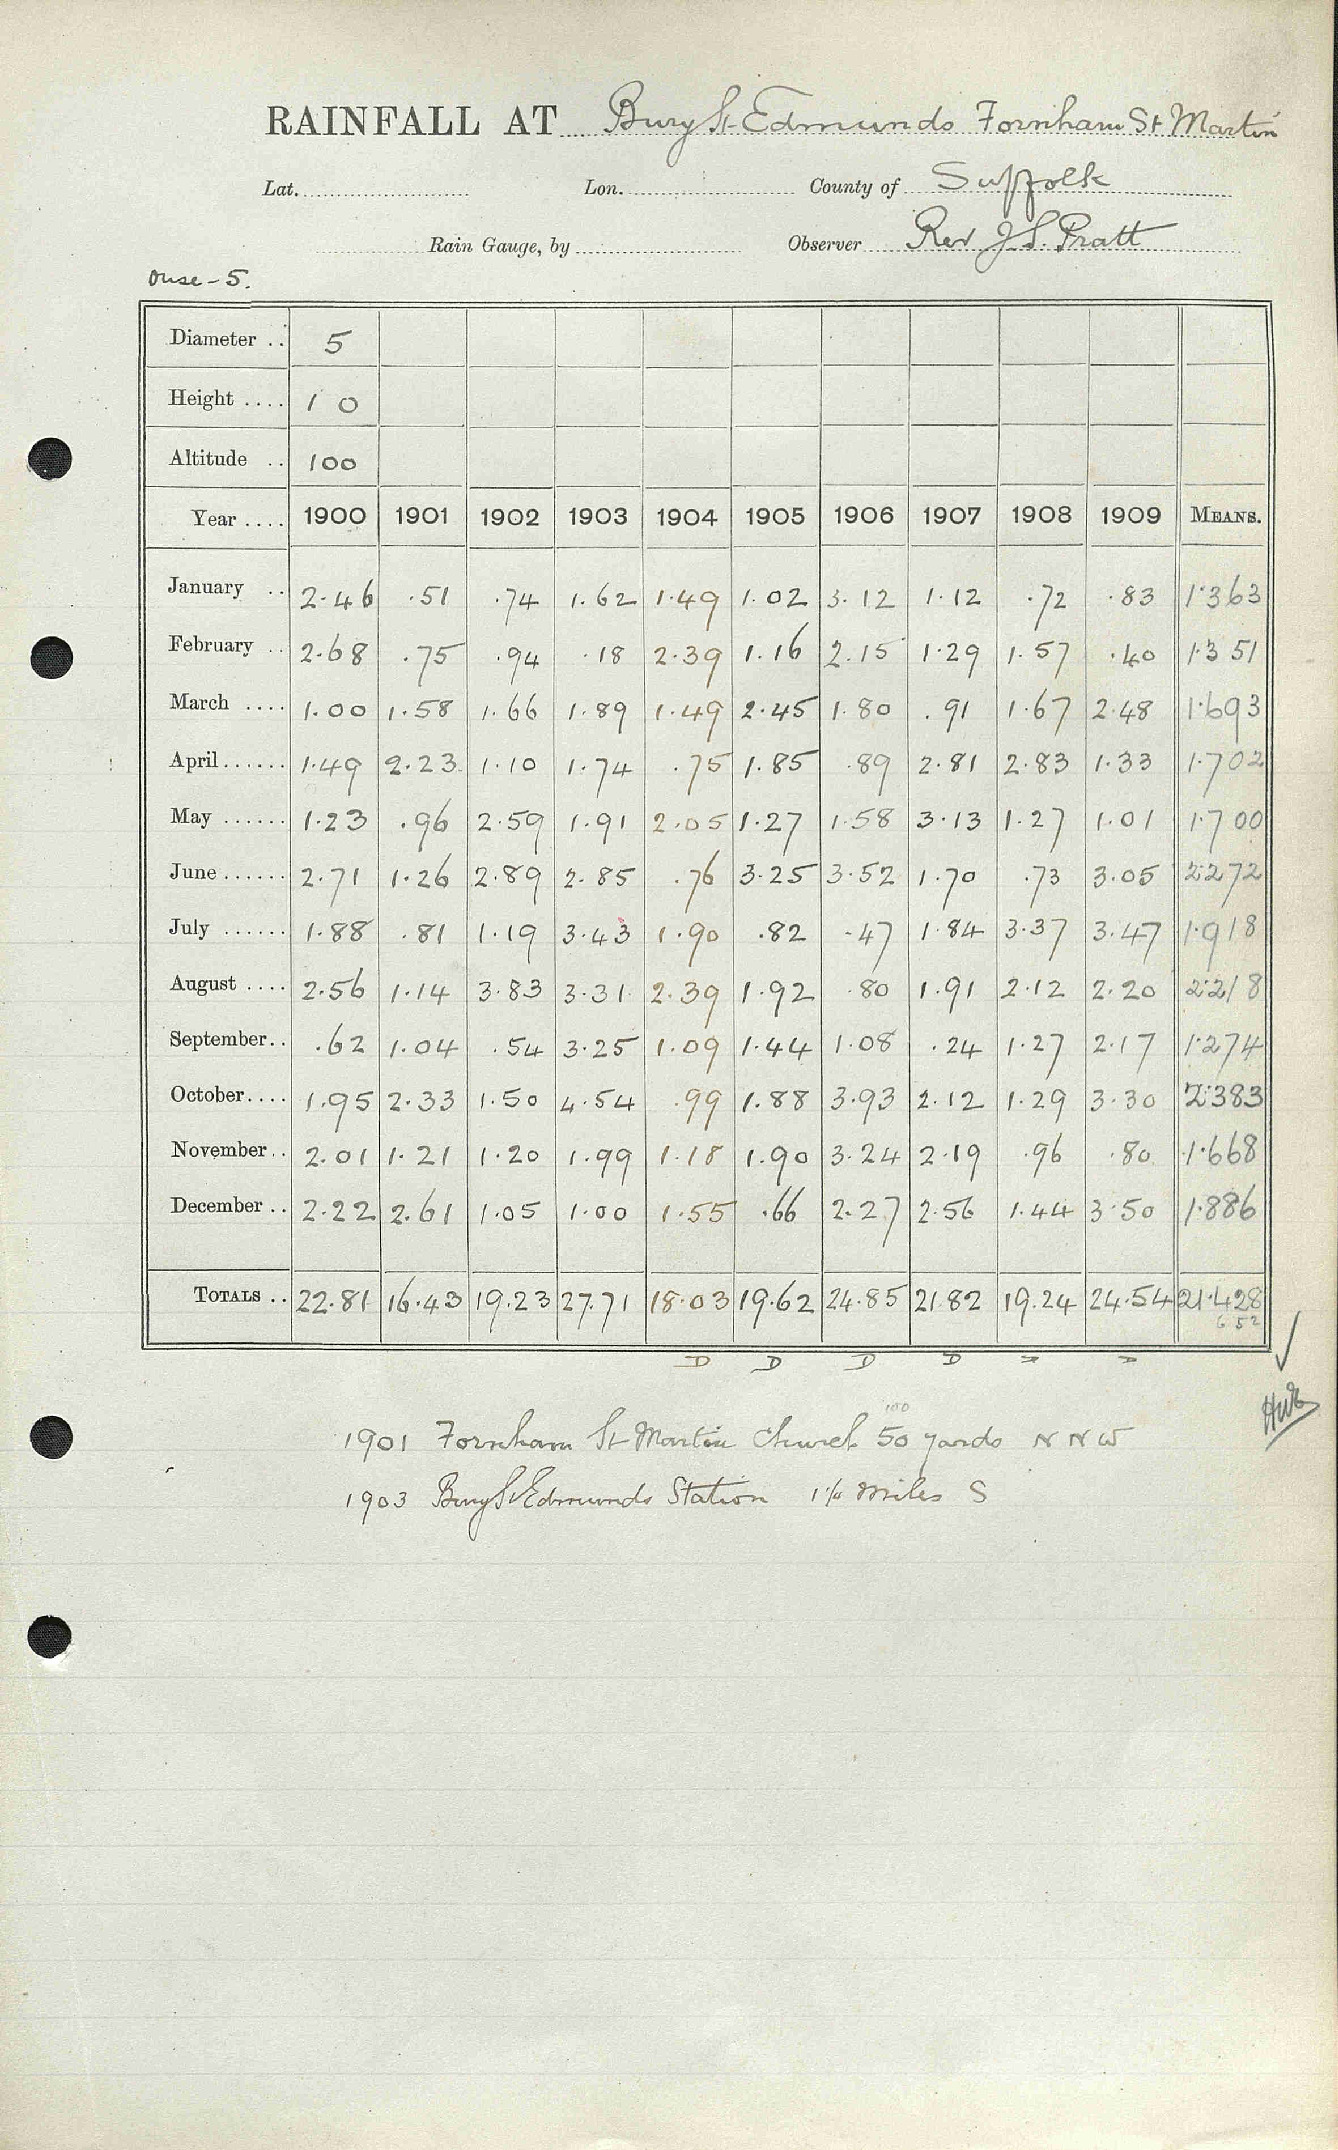 RAINFALL AT Bury St Edmunds Fornham St Martin
Lat. Lon. County of Suffolk
Rain Gauge, by Observer Rev J S. Pratt
Ouse - 5.
Diameter .. 5
Height .... 1 0
Altitude .. 100
Year .... 1900 1901 1902 1903 1904 1905 1906 1907 1908 1909 MEANS.
January .. 2.46 .51 .74 1.62 1.49 1.02 3.12 1.12 .72 .83 1.363
February .. 2.68 .75 .94 .18 2.39 1.16 2.15 1.29 1.57 .40 1.351
March .... 1.00 1.58 1.66 1.89 1.49 2.45 1.80 .91 1.67 2.48 1.693
April ...... 1.49 2.23 1.10 1.74 .75 1.85 .89 2.81 2.83 1.33 1.702
May ...... 1.23 .96 2.59 1.91 2.05 1.27 1.58 3.13 1.27 1.01 1.700
June ...... 2.71 1.26 2.89 2.85 .76 3.25 3.52 1.70 .73 3.05 2.272
July ...... 1.88 .81 1.19 3.43 1.90 .82 .47 1.84 3.37 3.47 1.918
August .... 2.56 1.14 3.83 3.31 2.39 1.92 .80 1.91 2.12 2.20 2.218
September .. .62 1.04 .54 3.25 1.09 1.44 1.08 .24 1.27 2.17 1.274
October .... 1.95 2.33 1.50 4.54 .99 1.88 3.93 2.12 1.29 3.30 2.383
November .. 2.01 1.21 1.20 1.99 1.18 1.90 3.24 2.19 .96 .80 1.668
December .. 2.22 2.61 1.05 1.00 1.55 .66 2.27 2.56 1.44 3.50 1.886
TOTALS .. 22.81 16.43 19.23 27.71 18.03 19.62 24.85 21.82 19.24 24.54 21.428
652
D D D D
100
1901 Fornham St Martin Church 50 yards N N W
1903 Bury St Edmunds Station 1½ miles S